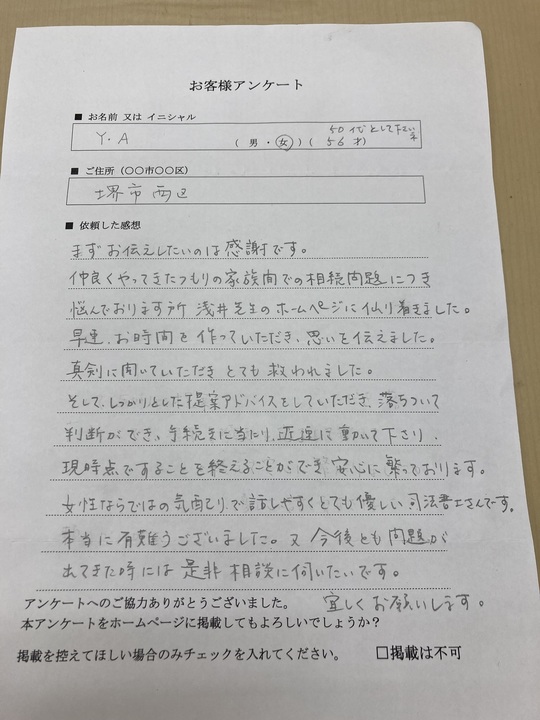 お客様アンケート
■ お名前 又は イニシャル
50代として下さい
Y・A （ 男 ・ 女 ）（ 56 才）
■ ご住所（〇〇市〇〇区）
堺市 西区
■ 依頼した感想
まず お伝えしたいのは 感謝です。
仲良くやってきたつもりの家族間での相続問題につき
悩んでおります所 浅井先生のホームページに仏り着きました。
早速、お時間を 作っていただき、思いを伝えました。
真剣に聞いていただき とても 救われました。
そして、しっかりとした提案アドバイスをしていただき、落ちついて
判断ができ、手続きに当たり、迅速に動いて下さり、
現時点ですることを終えることができ 安心に繋っております。
女性ならではの気配りで話しやすくとても優しい司法書士さんです。
本当に有難うございました。又 今後とも 問題が
出てきた時には 是非 相談に伺いたいです。
アンケートへのご協力ありがとうございました。 宜しくお願いします。
本アンケートをホームページに掲載してもよろしいでしょうか？
掲載を控えてほしい場合のみチェックを入れてください。 □掲載は不可